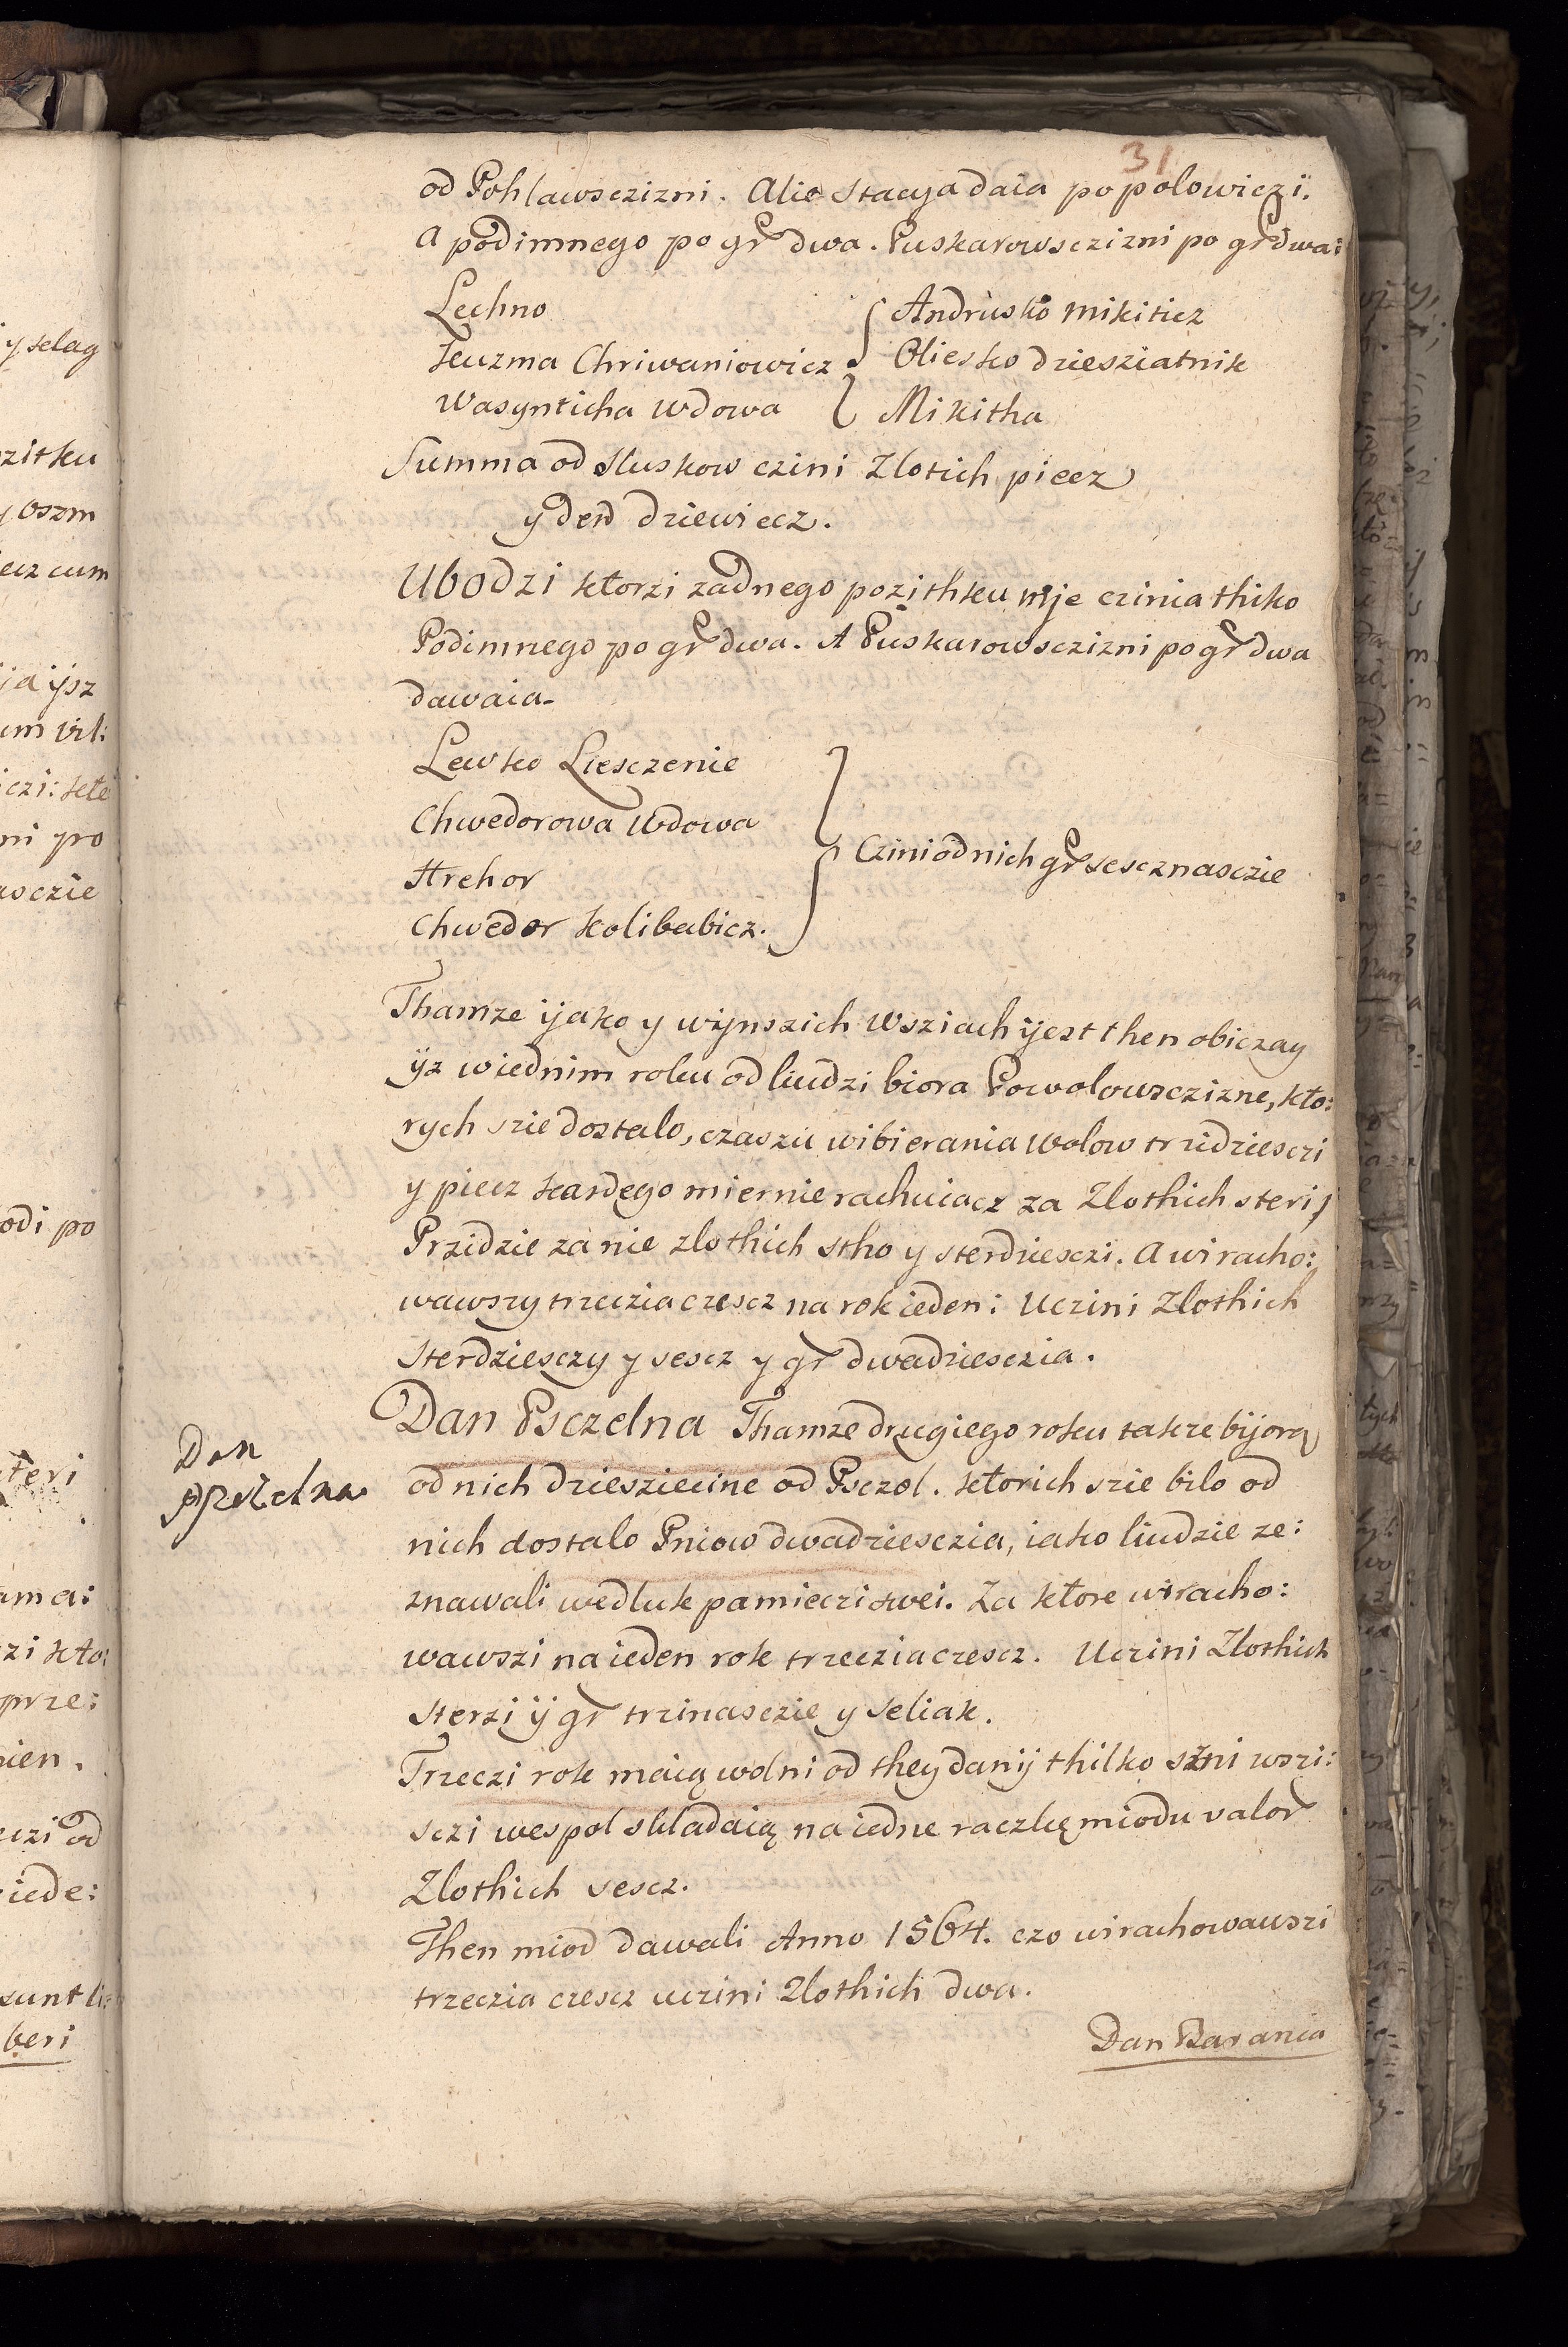 31
od Pohlawsczizni. Alie Stacya daia po polowiczi.
A podimnego po gr dwa. Puskarowsczizni po gr dwa:
Lechno
Kuzma Chriwaniowicz
Wasynticha Wdowa
Andrusko Mikiticz
Oliesko dziesziatnik
Mikitha
Summa od Sluskow czini Zlotich piecz
y den dziewiecz.
Ubodzi ktorzi zadnego pozithku nije czinia thiko
Podimnego po gr dwa. A Puskarowsczizni po gr dwa
dawaia.
Lewko Liesczenie
Chwedorowa Wdowa
Hrehor
Chwedor Kolibabicz.
Czini od nich gr sescznasczie
Thamze ijako y wijnszich Wsziach ijest then obiczay
ijz wiednim roku od liudzi biora Powolowsczizne, kto:
rych szie dostalo, czaszu wibierania Wolow trzidziesczi
y piecz kazdego miernie rachuiacz za Zlothich sterij
Przidzie za nie zlothich stho y sterdziesczi. A wiracho:
wawszy trzeczia czescz na rok ieden: Uczini Zlothich
Sterdziesczy y sescz y gr dwadziesczia.
Dan Psczelna Thamze drugiego roku takze bijorą
od nich dziesziecine od Psczol. ktorich szie bilo od
nich dostalo Pniow dwadziesczia, iako liudzie ze:
znawali wedluk pamieczi swei. Za ktore wiracho:
wawszi na ieden rok trzeczia czescz. Uczini Zlothich
Sterzi ij gr trzinasczie y Seliak.
Trzeczi rok maią wolni od they danij thilko szni wszi:
sczi wespol skladaią na iedne raczkę miodu valor
Zlothich sescz.
Then miod dawali Anno 1564. czo wirachowawszi
trzeczia czescz uczini Zlothich dwa.
Dan Barania
Dan
Pszczelna